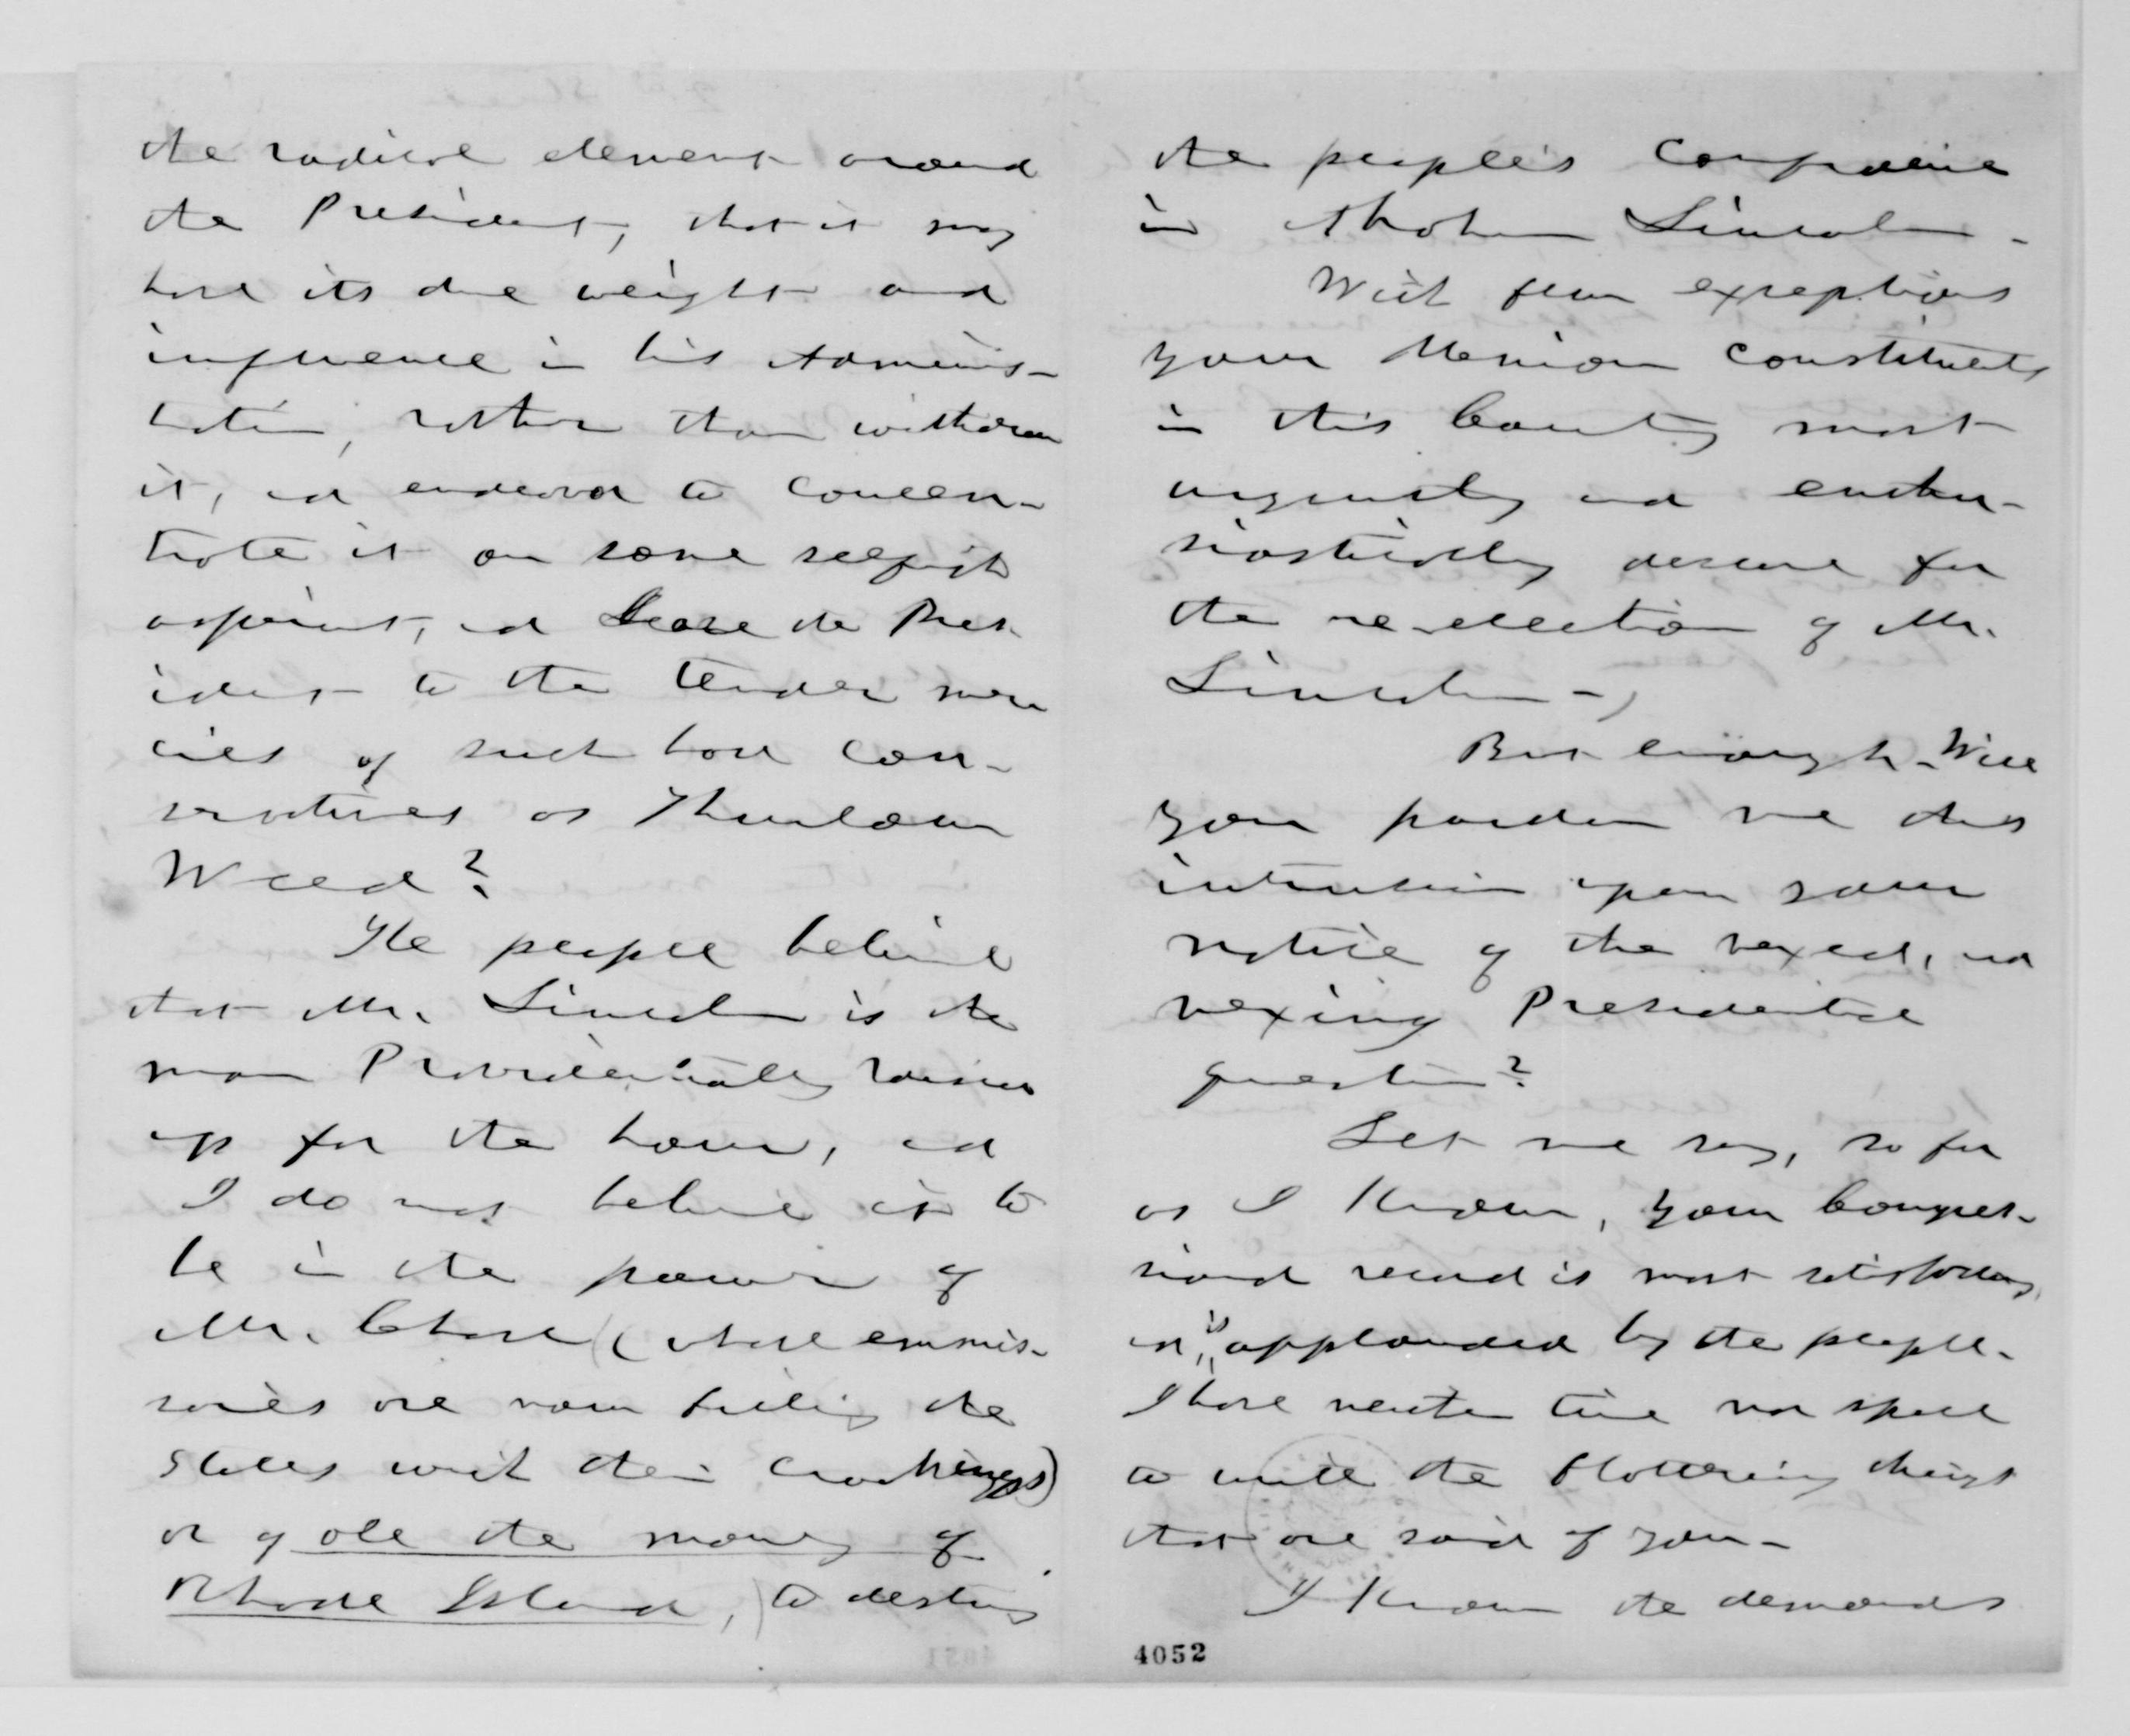 the radical element around
the President, that it may
have its due weight and
influence in his Adminis-
tration, rather than withdraw
it, and endeavor to concen-
trate it on some selfish
aspirant, and leave the Pres-
ident to the tender mer
cies of such hon con-
servatives as Thurlow
Weed?
The people believe
that Mr. Lincoln is the
man Providentially raised
up for the hour, and
I do not believe it to
be in the power of
Mr. Chase (whose emmis-
saries are now filling the
States with their croakings)
or of all the money of
Rhode Island, to destroy
the people's confidence
in Abraham Lincoln -
With few exceptions
your Union constituents
in this County most
urgently and enthu-
siastically desire for
the re-election of Mr.
Lincoln -
But enough - Will
you pardon me this
intrusion upon your
notice of the vexed, and
vexing Presidential
question?
Let me say, so far
as I know, your Congres-
sional record is most satisfactory,
and, is applauded by the people.
I have neither time nor space
to write the flattering things
that are said of you -
I know the demands
4052